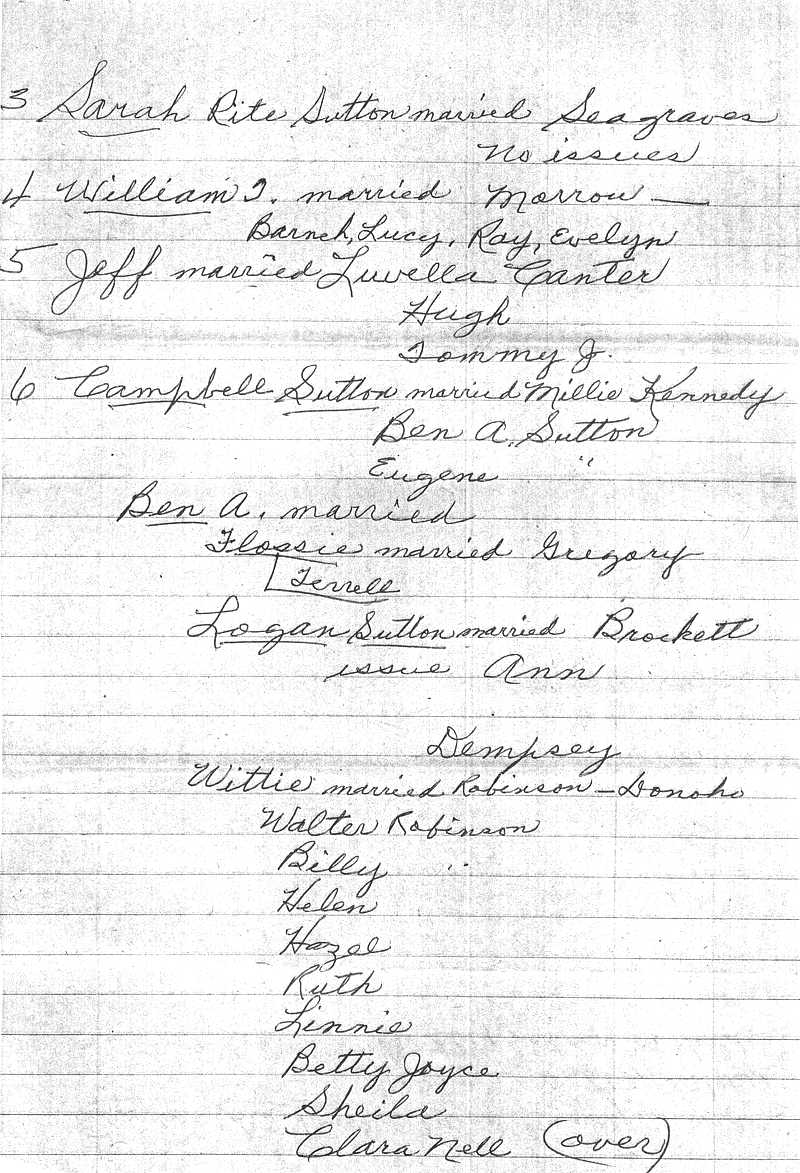 3 Sarah Rite Sutton married Seagraves
No issues
4 William T. married Morrow —
Barneh, Lucy, Ray, Evelyn
5 Jeff married Luvella Canter
Hugh
Tommy J.
6 Campbell Sutton married Millie Kennedy
Ben A. Sutton
Eugene "
Ben A. married
Flossie married Gregory
Terrell
Logan Sutton married Brockett
issue Ann
Dempsey
Wittie married Robinson – Donoho
Walter Robinson
Billy "
Helen
Hazel
Ruth
Linnie
Betty Joyce
Sheila
Clara Nell (over)